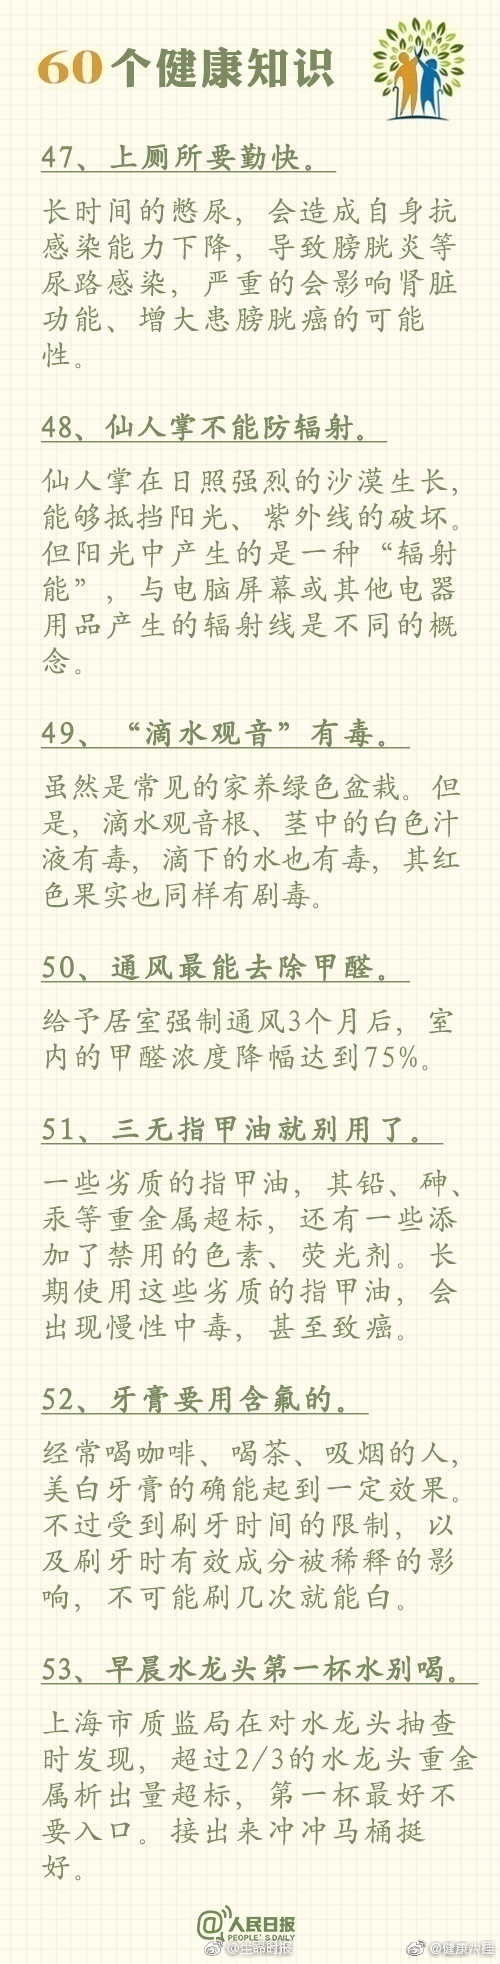 60个健康知识
47、上厕所要勤快。
长时间的憋尿，会造成自身抗
感染能力下降，导致膀胱炎等
尿路感染，严重的会影响肾脏
功能、增大患膀胱癌的可能
性。
48、仙人掌不能防辐射。
仙人掌在日照强烈的沙漠生长，
能够抵挡阳光、紫外线的破坏。
但阳光中产生的是一种“辐射
能”，与电脑屏幕或其他电器
用品产生的辐射线是不同的概
念。
49、“滴水观音”有毒。
虽然是常见的家养绿色盆栽。但
是，滴水观音根、茎中的白色汁
液有毒，滴下的水也有毒，其红
色果实也同样有剧毒。
50、通风最能去除甲醛。
给予居室强制通风3个月后，室
内的甲醛浓度降幅达到75%。
51、三无指甲油就别用了。
一些劣质的指甲油，其铅、砷、
汞等重金属超标，还有一些添
加了禁用的色素、荧光剂。长
期使用这些劣质的指甲油，会
出现慢性中毒，甚至致癌。
52、牙膏要用含氟的。
经常喝咖啡、喝茶、吸烟的人，
美白牙膏的确能起到一定效果。
不过受到刷牙时间的限制，以
及刷牙时有效成分被稀释的影
响，不可能刷几次就能白。
53、早晨水龙头第一杯水别喝。
上海市质监局在对水龙头抽查
时发现，超过2/3的水龙头重金
属析出量超标，第一杯最好不
要入口。接出来冲冲马桶挺
好。
@人民日报
PEOPLE'S DAILY
@生命时报